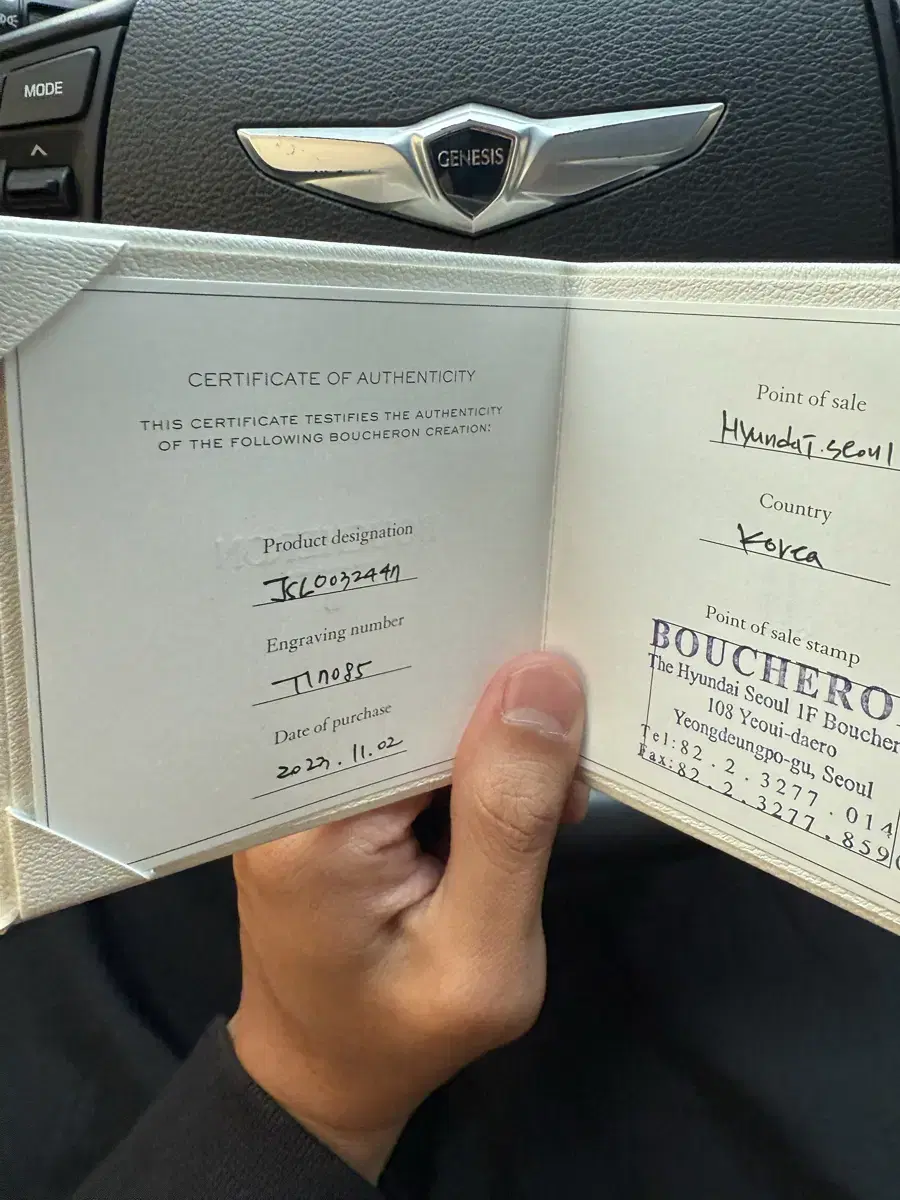 MODE
GENESIS
CERTIFICATE OF AUTHENTICITY
THIS CERTIFICATE TESTIFIES THE AUTHENTICITY
OF THE FOLLOWING BOUCHERON CREATION:
Product designation
Engraving number
Date of purchase
Point of sale
Hyundai.seoul
Country
Korea
Point of sale stamp
BOUCHERO
The Hyundai Seoul 1F Boucher
108 Yeoui-daero
Yeongdeungpo-gu, Seoul
Tel:82.2.3277.014
Fax:82.2.3277.859